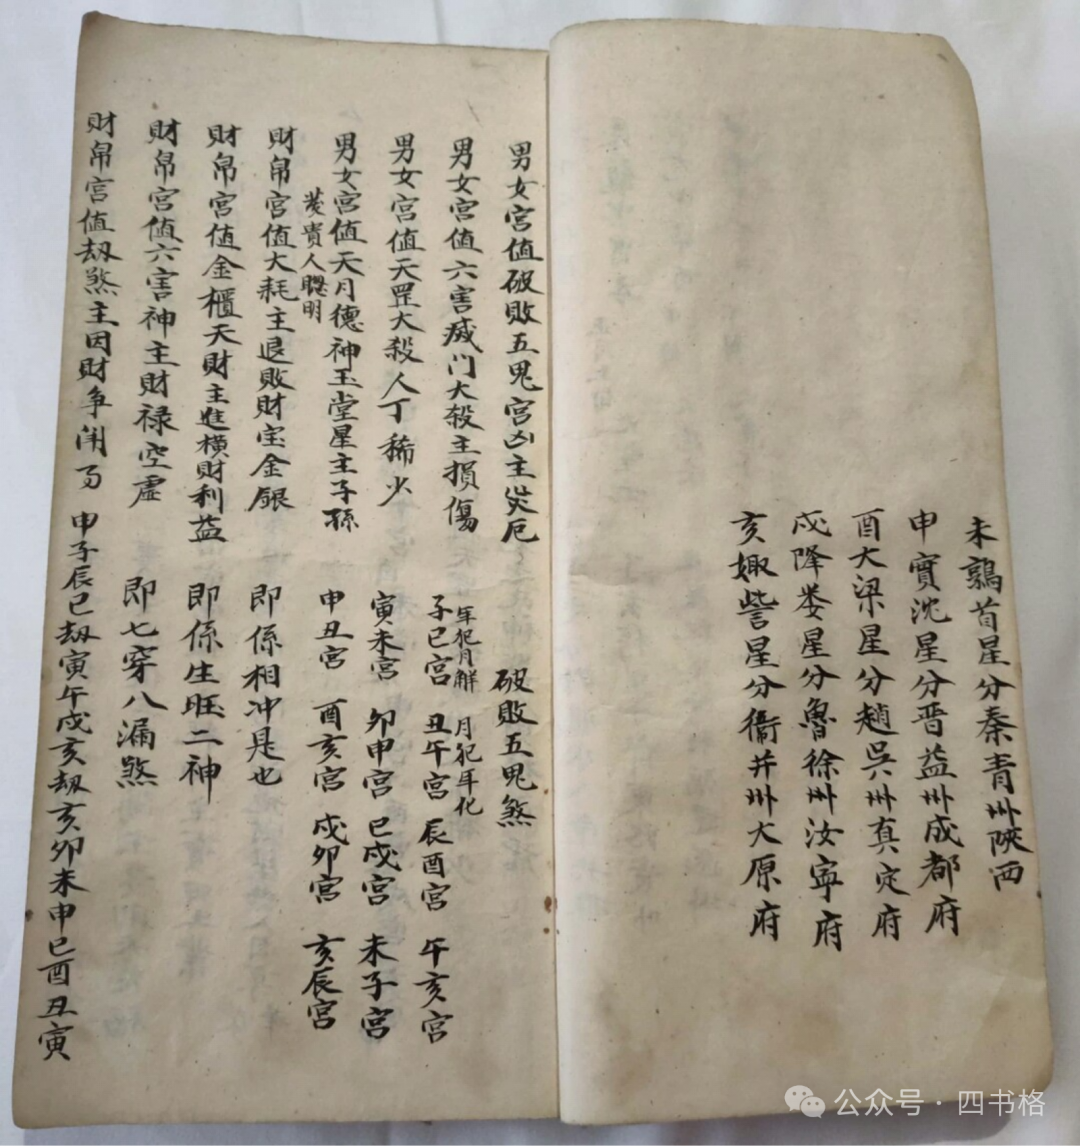 未鶉首星分秦青州陝西
申實沈星分晋益州成都府
酉大梁星分趙吳州真定府
戍降娄星分魯徐州汝寧府
亥娵訾星分衞并州大原府
男女宮值破敗五鬼宮凶主災厄
破敗五鬼煞
男女宮值六害滅门大殺主損傷
年犯月解 月犯年化
子巳宮 丑午宮 辰酉宮 午亥宮
男女宮值天罡大殺人丁稀少
寅未宮 卯申宮 巳戍宮 未子宮
男女宮值天月德神玉堂星主子孫
發貴人聰明
申丑宮 酉亥宮 戍卯宮 亥辰宮
財帛宮值大耗主退敗財宝金銀
即係相冲是也
財帛宮值金櫃天財主進橫財利益
即係生旺二神
財帛宮值六害神主財禄空虛
即七穿八漏煞
財帛宮值刼煞主因財争闹
申子辰巳刼寅午戍亥刼亥卯未申巳酉丑寅
公众号·四书格